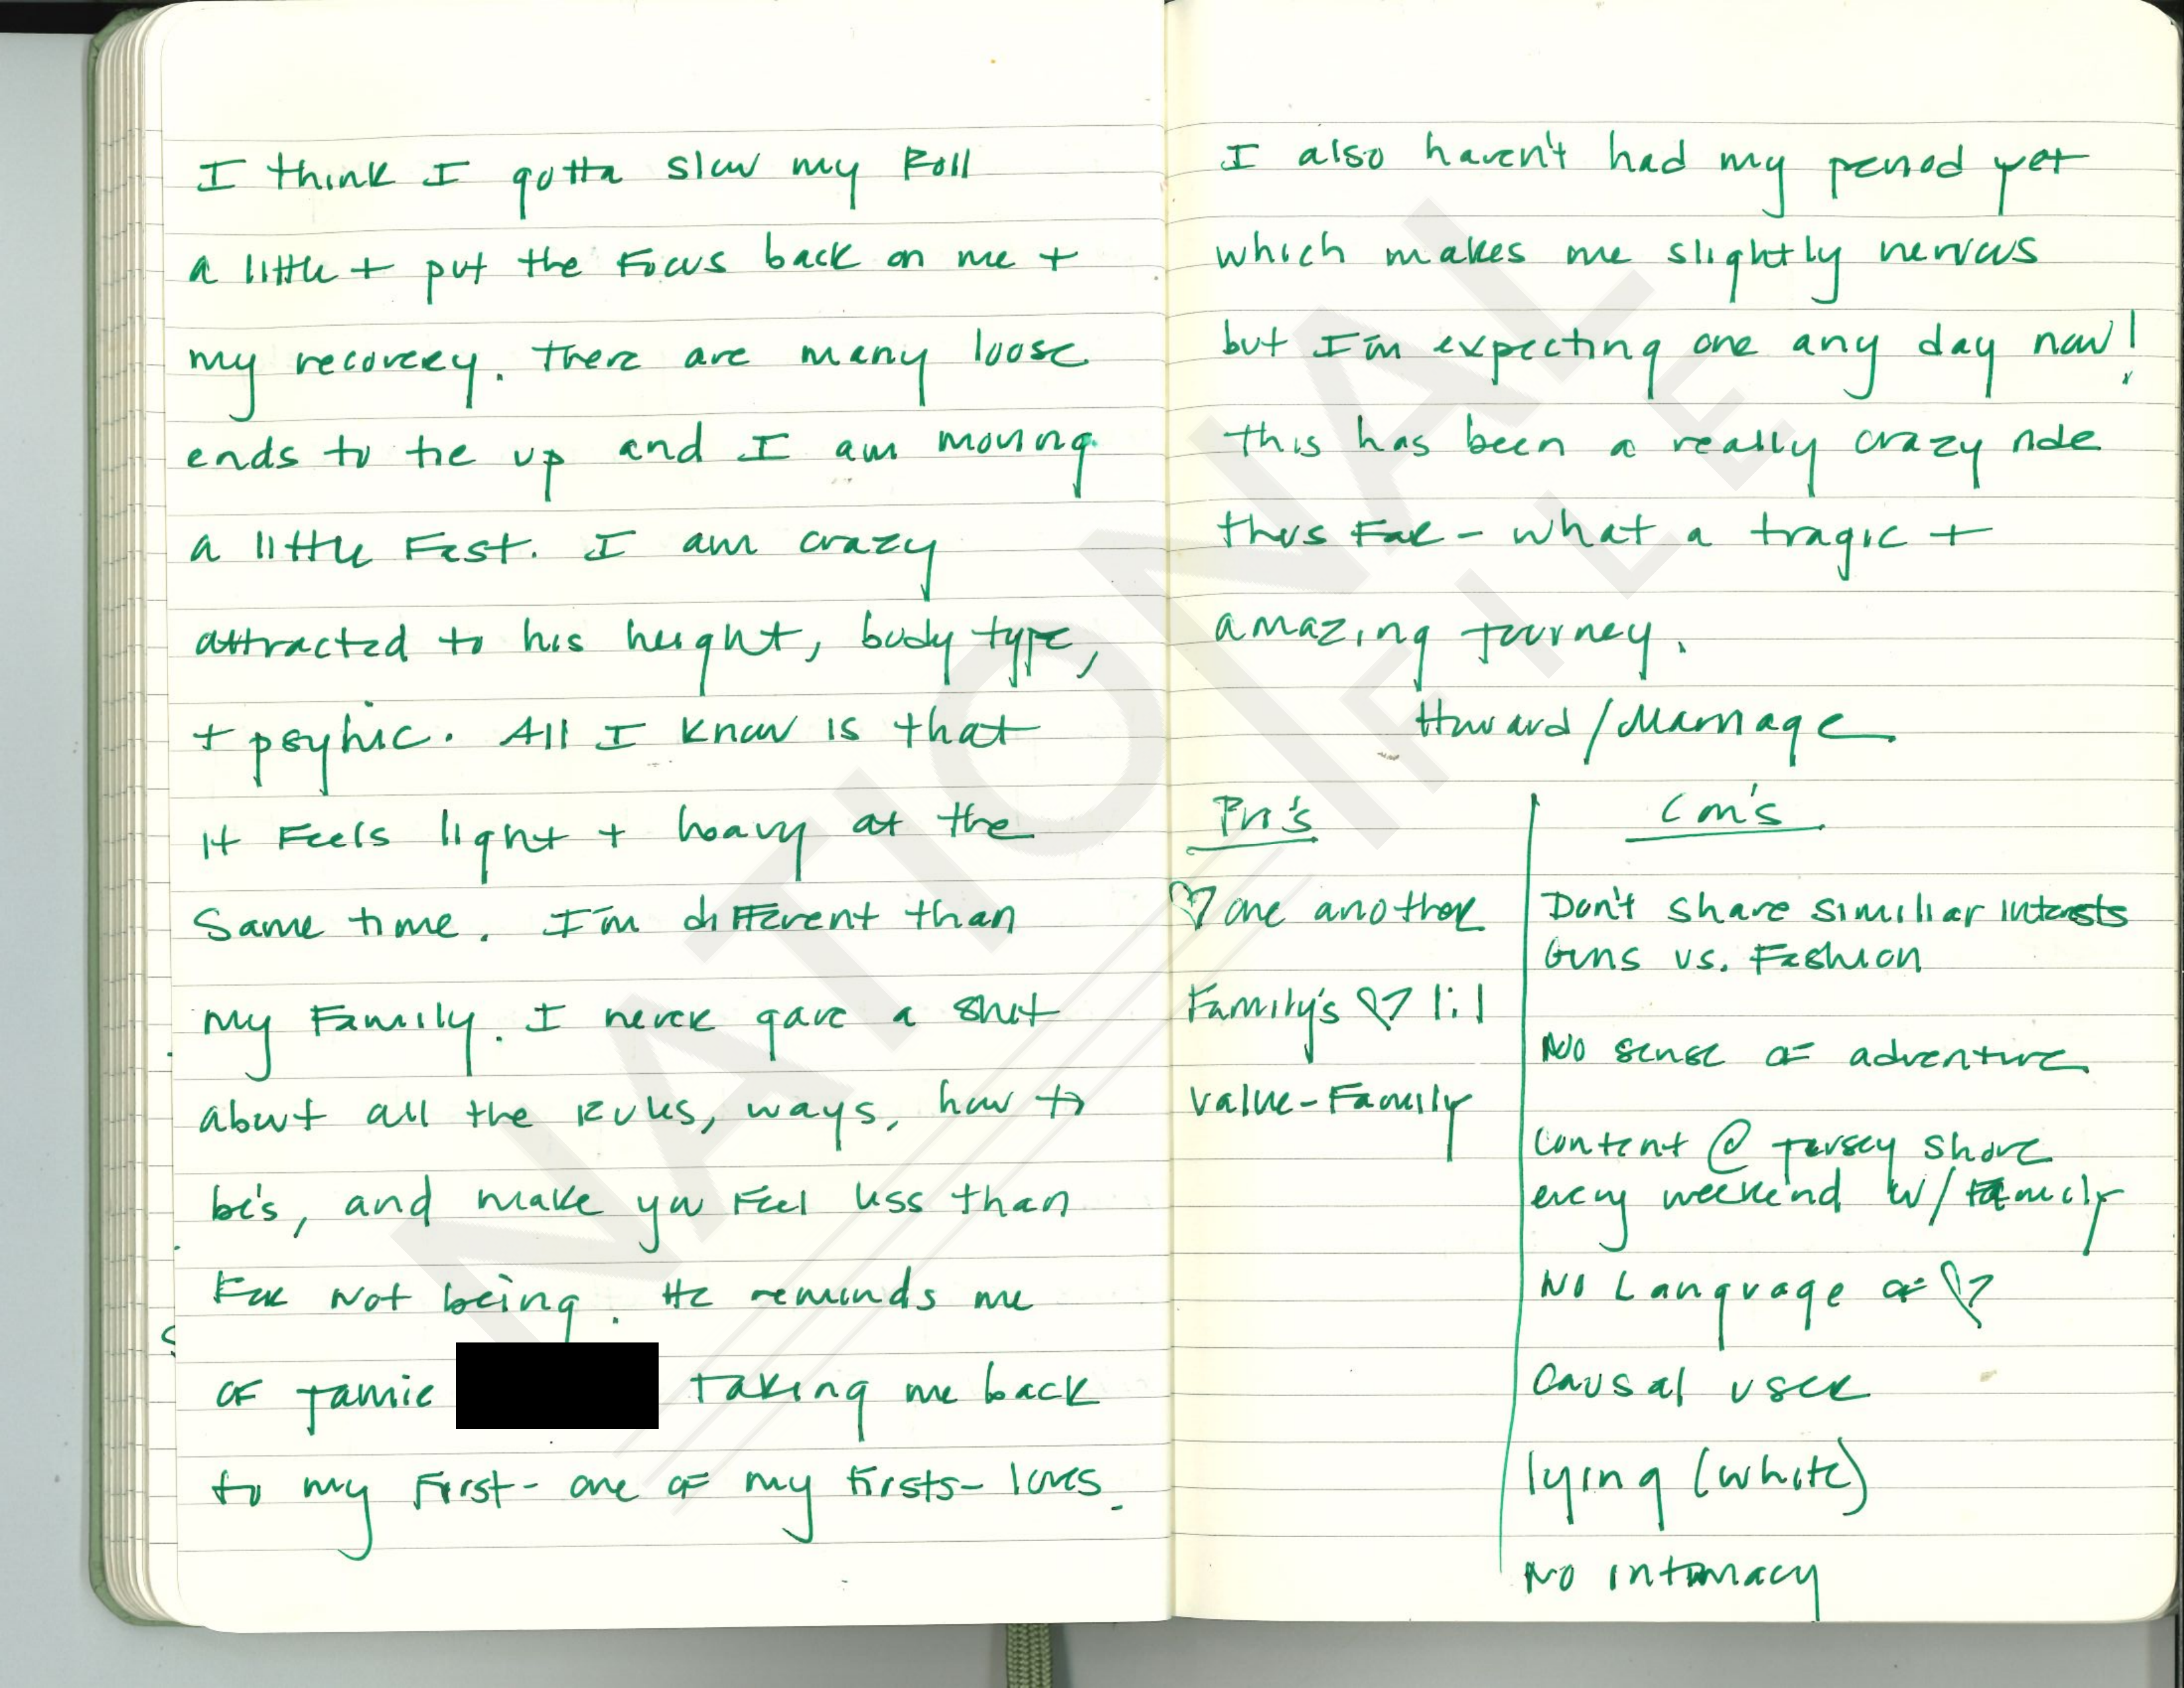 I think I gotta slow my Roll
a little + put the Focus back on me +
my recovery. There are many loose
ends to tie up and I am moving
a little Fast. I am crazy
attracted to his height, body type,
+ psyhic. All I know is that
it Feels light + heavy at the
Same time. I'm different than
my Family. I never gave a shit
about all the Rules, ways, how to
be's, and make you Feel less than
For Not being. He reminds me
of Jamie
Taking me back
to my First- one of my firsts- loves.
I also haven't had my period yet
which makes me slightly nervous
but I'm expecting one any day now!
This has been a really crazy ride
thus Far - what a tragic +
amazing journey.
Howard/Marriage
Pro's
♡ one another
Family's ♡ lil
value-Family
Con's
Don't share similiar intersts
Guns vs. Fashion
No sense of adventure
Content @ Jersey Shore
every weekend w/ family
No Language of ♡
Causal user
lying (white)
No intimacy
NATIONAL
FILE